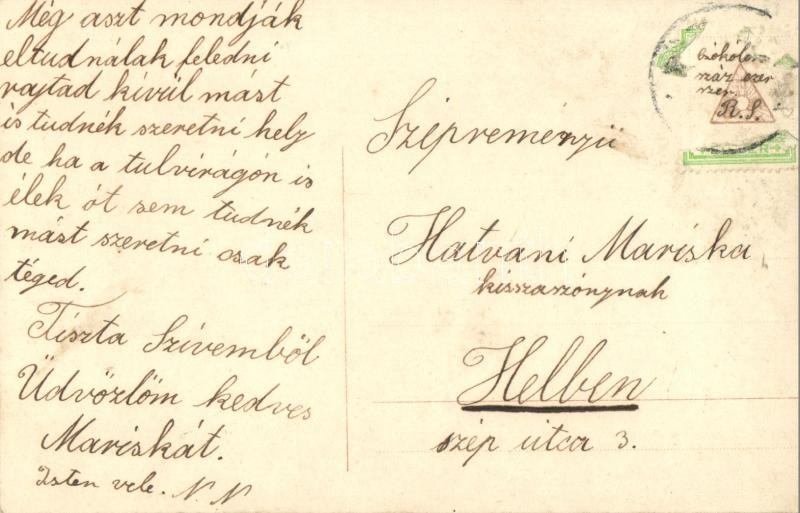 Még aszt mondják
eltudnálak feledni
rajtad kívül mást
is tudnék szeretni hely
de ha a tulvirágón is
élek öt sem tudnék
mást szeretni csak
téged.
Tiszta Szívemből
Üdvözlöm kedves
Mariskát.
Isten vele. N. N
Szépreményü
Hatvani Mariska
kisszaszónynak
Helben
szép utca 3.
száz ezer
szer.
R. S.